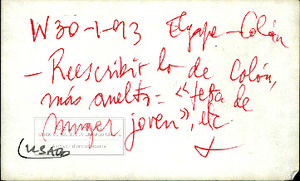 W 30-1-93 Elgype-Colón
- Reescribir lo de Colón,
más suelto = «teta de
mujer joven», etc
(USADO